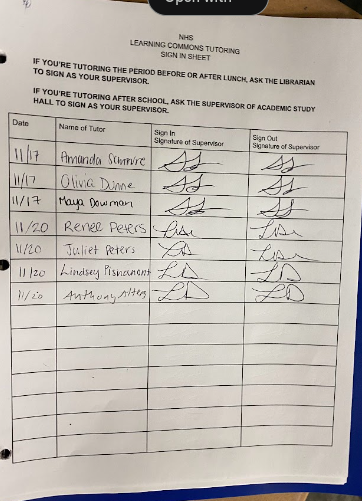 NHS
LEARNING COMMONS TUTORING
SIGN IN SHEET
IF YOU'RE TUTORING THE PERIOD BEFORE OR AFTER LUNCH, ASK THE LIBRARIAN
TO SIGN AS YOUR SUPERVISOR.
IF YOU'RE TUTORING AFTER SCHOOL, ASK THE SUPERVISOR OF ACADEMIC STUDY
HALL TO SIGN AS YOUR SUPERVISOR.
Date Name of Tutor Sign In Signature of Supervisor Sign Out Signature of Supervisor
11/17 Amanda
11/17 Olivia Dunne
11/17 Maya Dowman
11/20 Renee Peters
11/20 Juliet Peters
11/20 Lindsey LD LD
11/20 Anthony LD LD